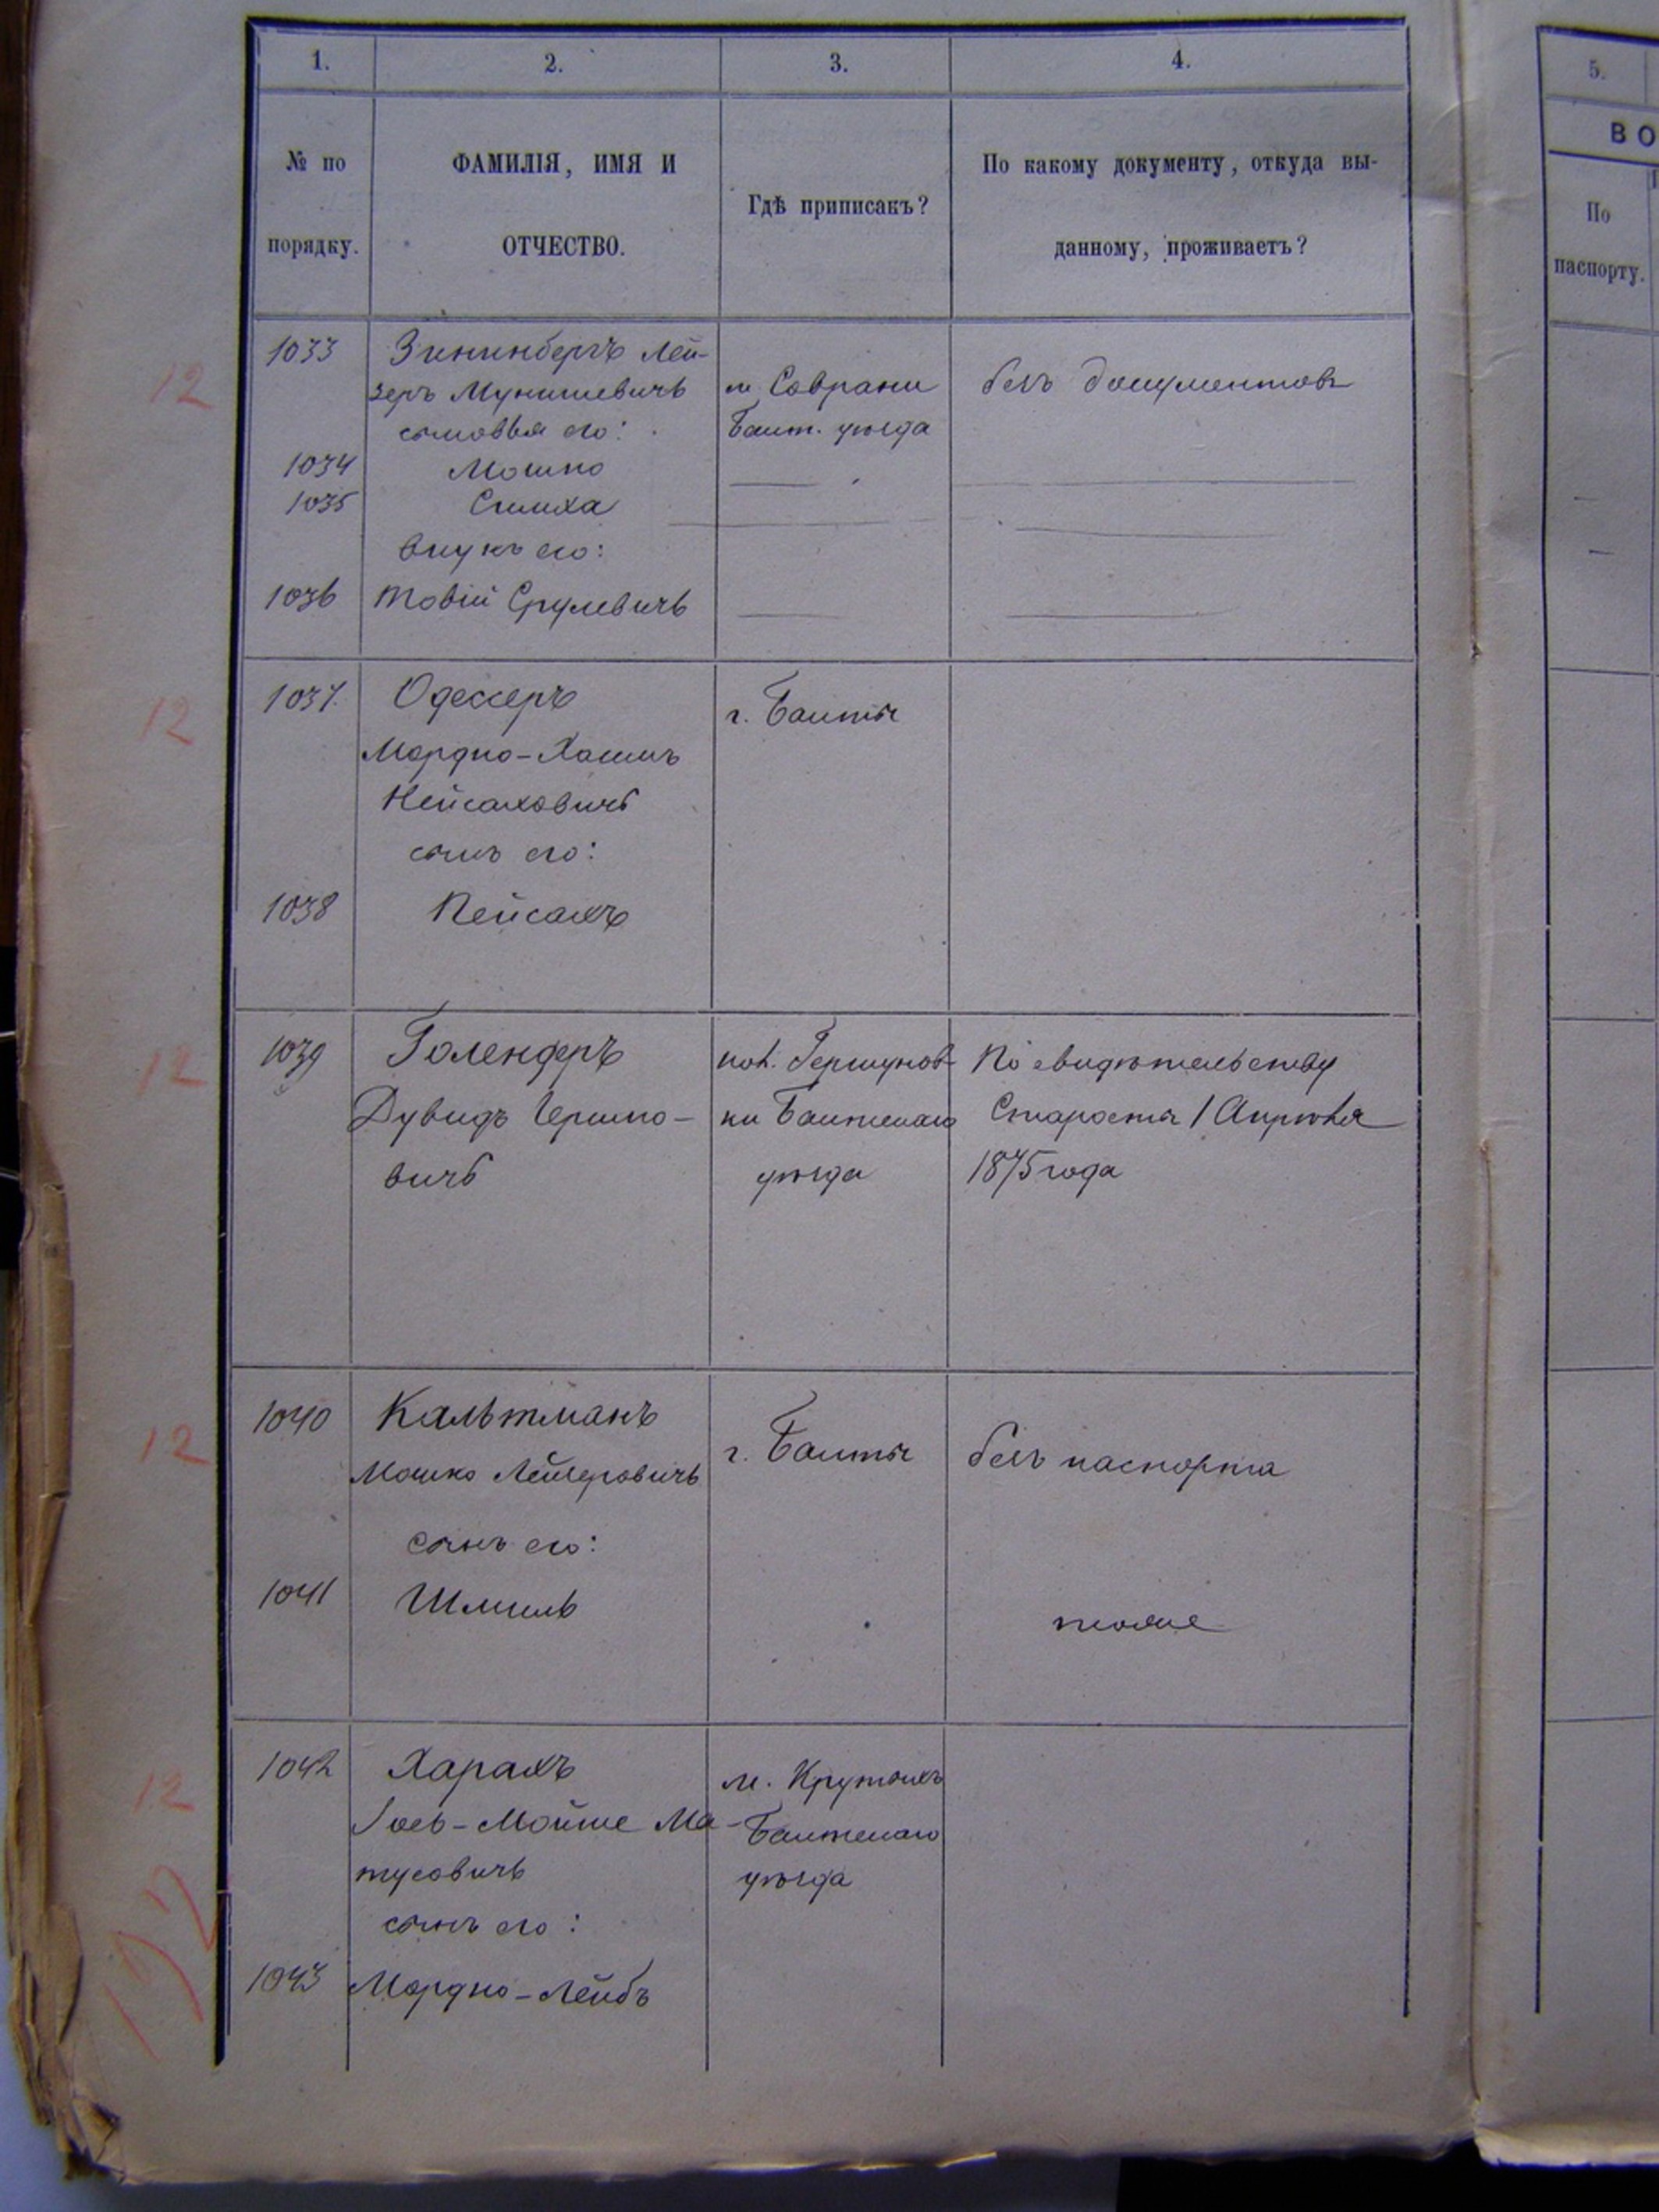 1. 2. 3. 4.
№ по порядку. ФАМИЛІЯ, ИМЯ И ОТЧЕСТВО. Гдѣ приписакъ? По какому документу, откуда вы-
данному, проживаетъ?
1033 Зининбергъ Лей-
зеръ Мунишевичъ м Саврани безъ документовъ
сыновья его: Балт. уѣзда
1034 Мошко
1035 Симха
внукъ его:
1036 Товій Срулевичъ
1037. Одессеръ г. Балты
Мордко-Хаимъ
Пейсаховичъ
сынъ его:
1038 Пейсахъ
1039 Голендеръ пос. Гершунов- По свидѣтельству
Дувидъ Гершко- ки Балтскаго Старосты 1 Апрѣля
вичъ уѣзда 1875 года
1040 Кальтманъ г. Балты безъ паспорта
Мошко Лейзеровичъ
сынъ его:
1041 Шмиль тоже
1042 Харахъ м. Крутыхъ
Іосъ-Мойше Ма- Балтскаго
тусовичъ уѣзда
сынъ его:
1043 Мордко-Лейбъ
12
12
12
12
12
192
5.
ВО
По
паспорту.